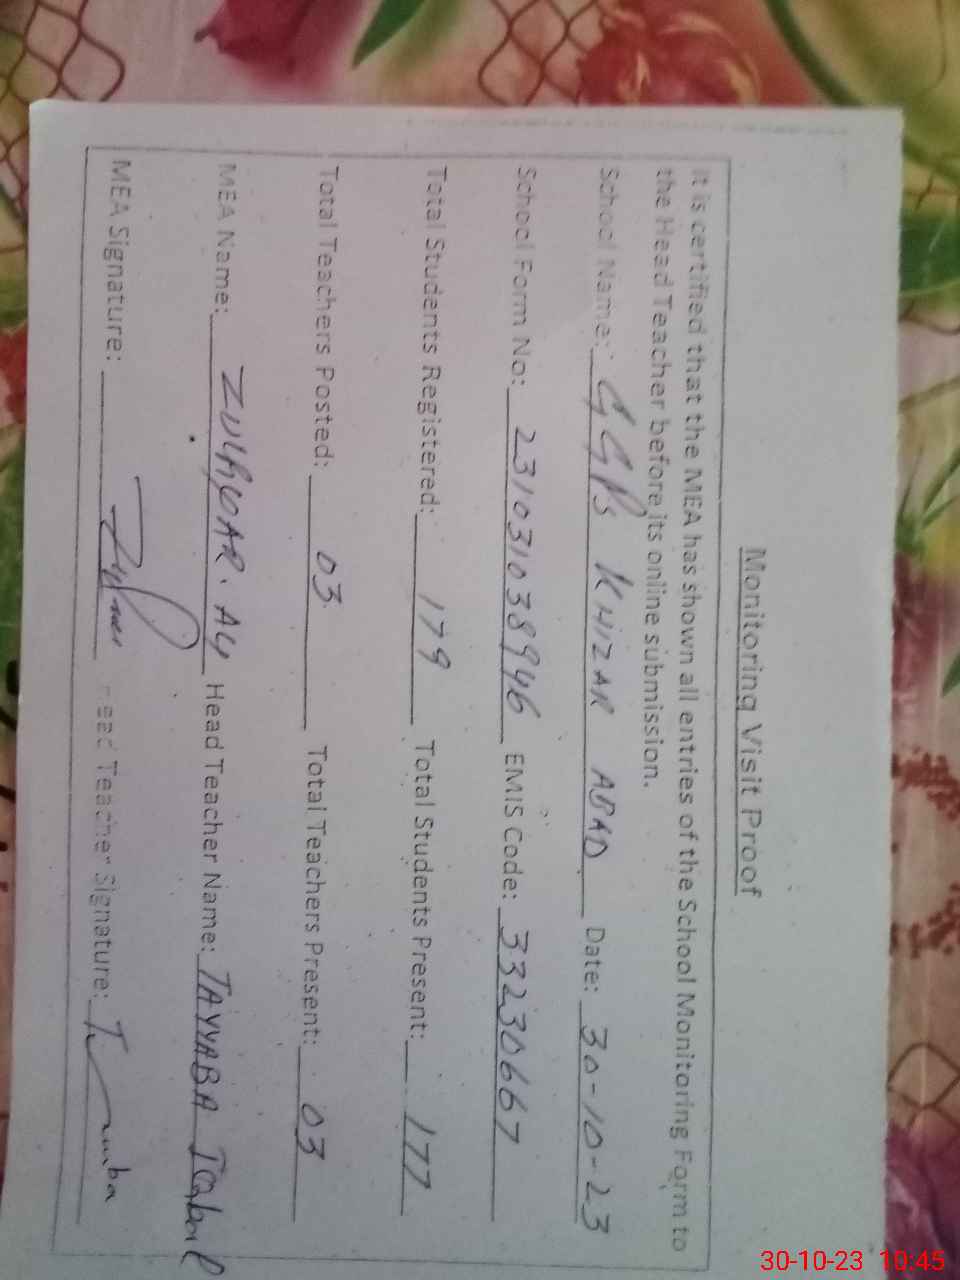 Monitoring Visit Proof
It is certified that the MEA has shown all entries of the School Monitoring Form to
the Head Teacher before its online submission.
School Name: GGPS KHIZAR ABAD Date: 30-10-23
School Form No: 231031038946 EMIS Code: 33230667
Total Students Registered: 179 Total Students Present: 177
Total Teachers Posted: 03 Total Teachers Present: 03
MEA Name: ZULFIQAR. ALI Head Teacher Name: TAYYABA Iqbal
MEA Signature: Head Teacher Signature:
30-10-23 10:45